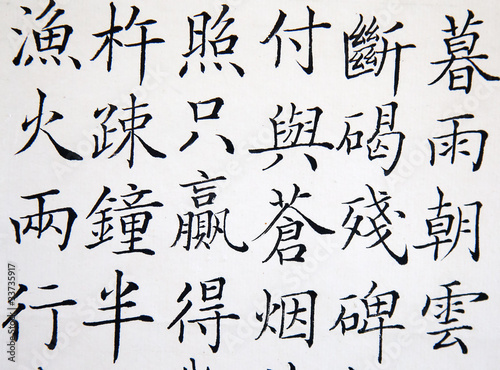 暮雨朝雲
斷碣殘碑
付與蒼烟
照只贏得
杵疎鐘半
漁火兩行